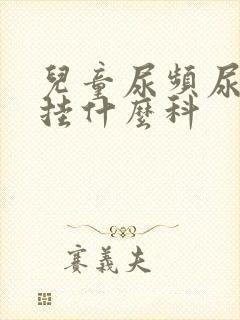 兒童尿頻尿
挂什麽科
賽義夫